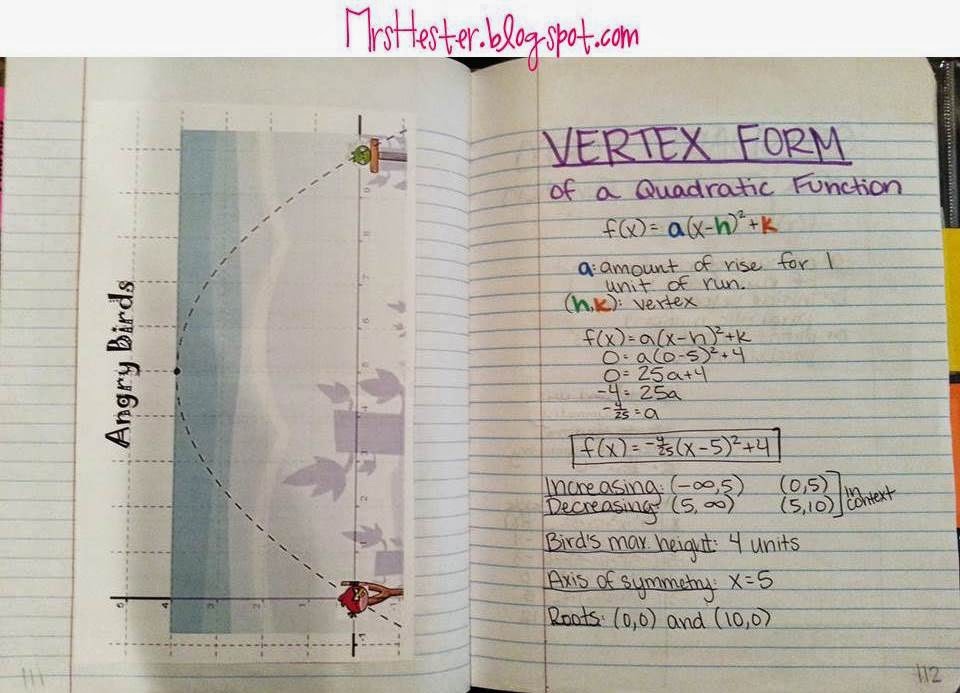 MrsHester.blogspot.com
Angry Birds
5
4
3
2
1
-1
-1
2
3
4
5
6
7
8
9
111
VERTEX FORM
of a Quadratic Function
f(x)= a(x-h)²+k
a: amount of rise for 1
unit of run.
(h,k): vertex
f(x)=a(x-h)²+k
0=a(0-5)²+4
0=25a+4
-4=25a
-4/25=a
f(x)=-4/25(x-5)²+4
Increasing: (-∞,5) (0,5)
Decreasing: (5,∞) (5,10)
in context
Bird's max. height: 4 units
Axis of symmetry: x=5
Roots: (0,0) and (10,0)
112